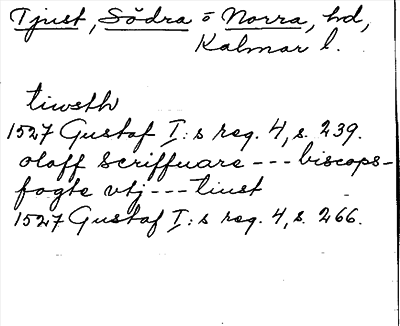 Tjust, Södra o Norra, hd,
Kalmar l.
tiwsth
1527 Gustaf I:s reg. 4, s. 239.
olaff scriffuare --- biscops-
fogte vtj --- tiust
1527 Gustaf I:s reg. 4, s. 266.